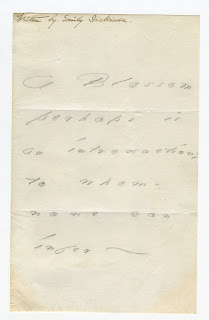 Written by Emily Dickinson.
A Blossom
perhaps is
an introduction,
to whom -
none can
infer -